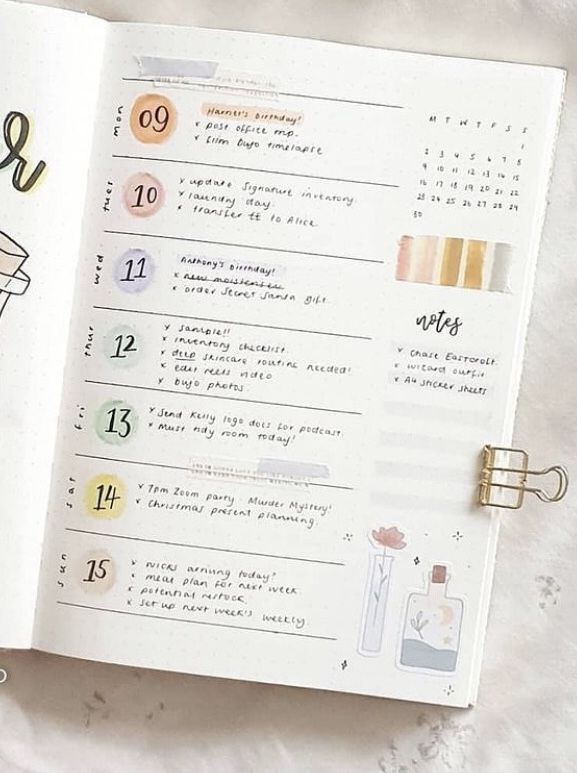 r
mon
09
Harriet's Birthday!
x post office trip.
x film bujo timelapse
tues
10
x update signature inventory.
x laundry day.
x transfer ££ to Alice
wed
11
Anthony's Birthday!
x new moisteriser
x order Secret Santa gift.
thur
12
x sample!!
x inventory checklist.
x deep skincare routine needed!
x edit reels video
x bujo photos.
fri
13
x Send Kelly logo docs for podcast
x Must tidy room today!
sat
14
x 7pm Zoom party. Murder Mystery!
x Christmas present planning.
sun
15
x nicks arriving today?
x meal plan for next week
x potential restock.
x set up next week's weekly.
M T W T F S S
1
2 3 4 5 6 7 8
9 10 11 12 13 14 15
16 17 18 19 20 21 22
23 24 25 26 27 28 29
30
notes
x Chase Eastcroft.
x wizard outfit
x A4 sticker sheets